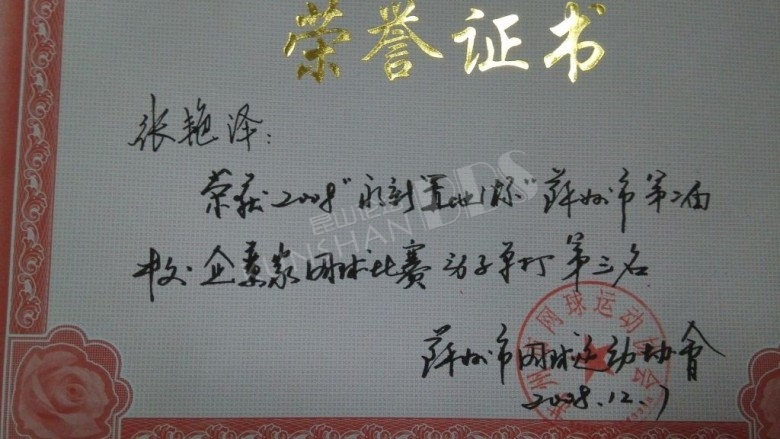 荣誉证书
张艳泽:
荣获2008"永新置地杯"苏州市第二届
企业家网球比赛男子单打第三名
苏州市网球运动协会
2008.12.7
州市网球运动协会
昆山论坛BBS
KUNSHAN